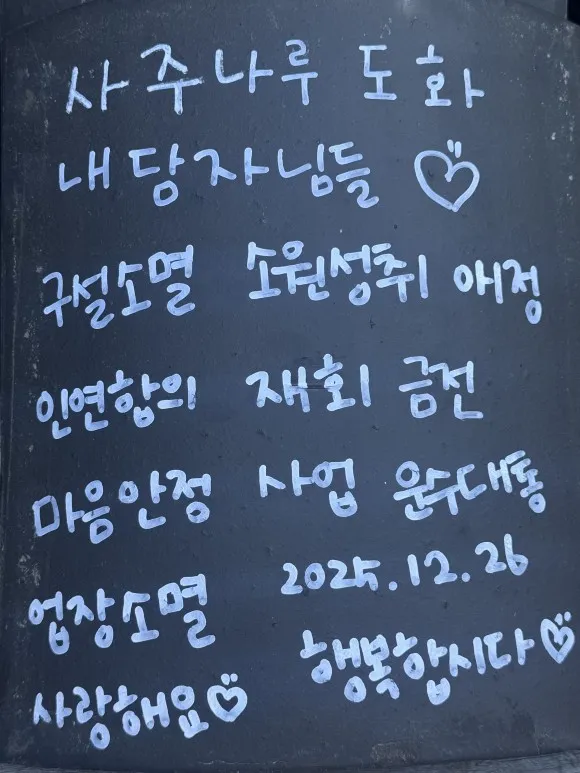 사주나루 도화
내담자님들 ♡
구설소멸 소원성취 애정
인연합의 재회 금전
마음안정 사업 운수대통
업장소멸 2025.12.26
사랑해요♡ 행복합시다♡